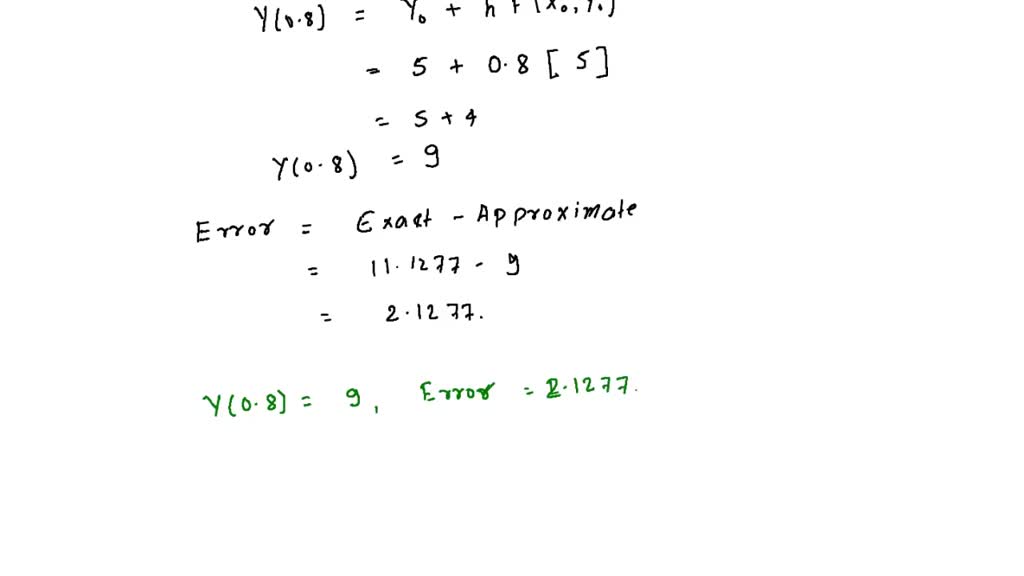 Y(0.8) = Y₀ + h f(x₀, Y₀)
= 5 + 0.8 [ 5 ]
= 5 + 4
Y(0.8) = 9
Error = Exact - Approximate
= 11.1277 - 9
= 2.1277.
Y(0.8) = 9, Error = 2.1277.